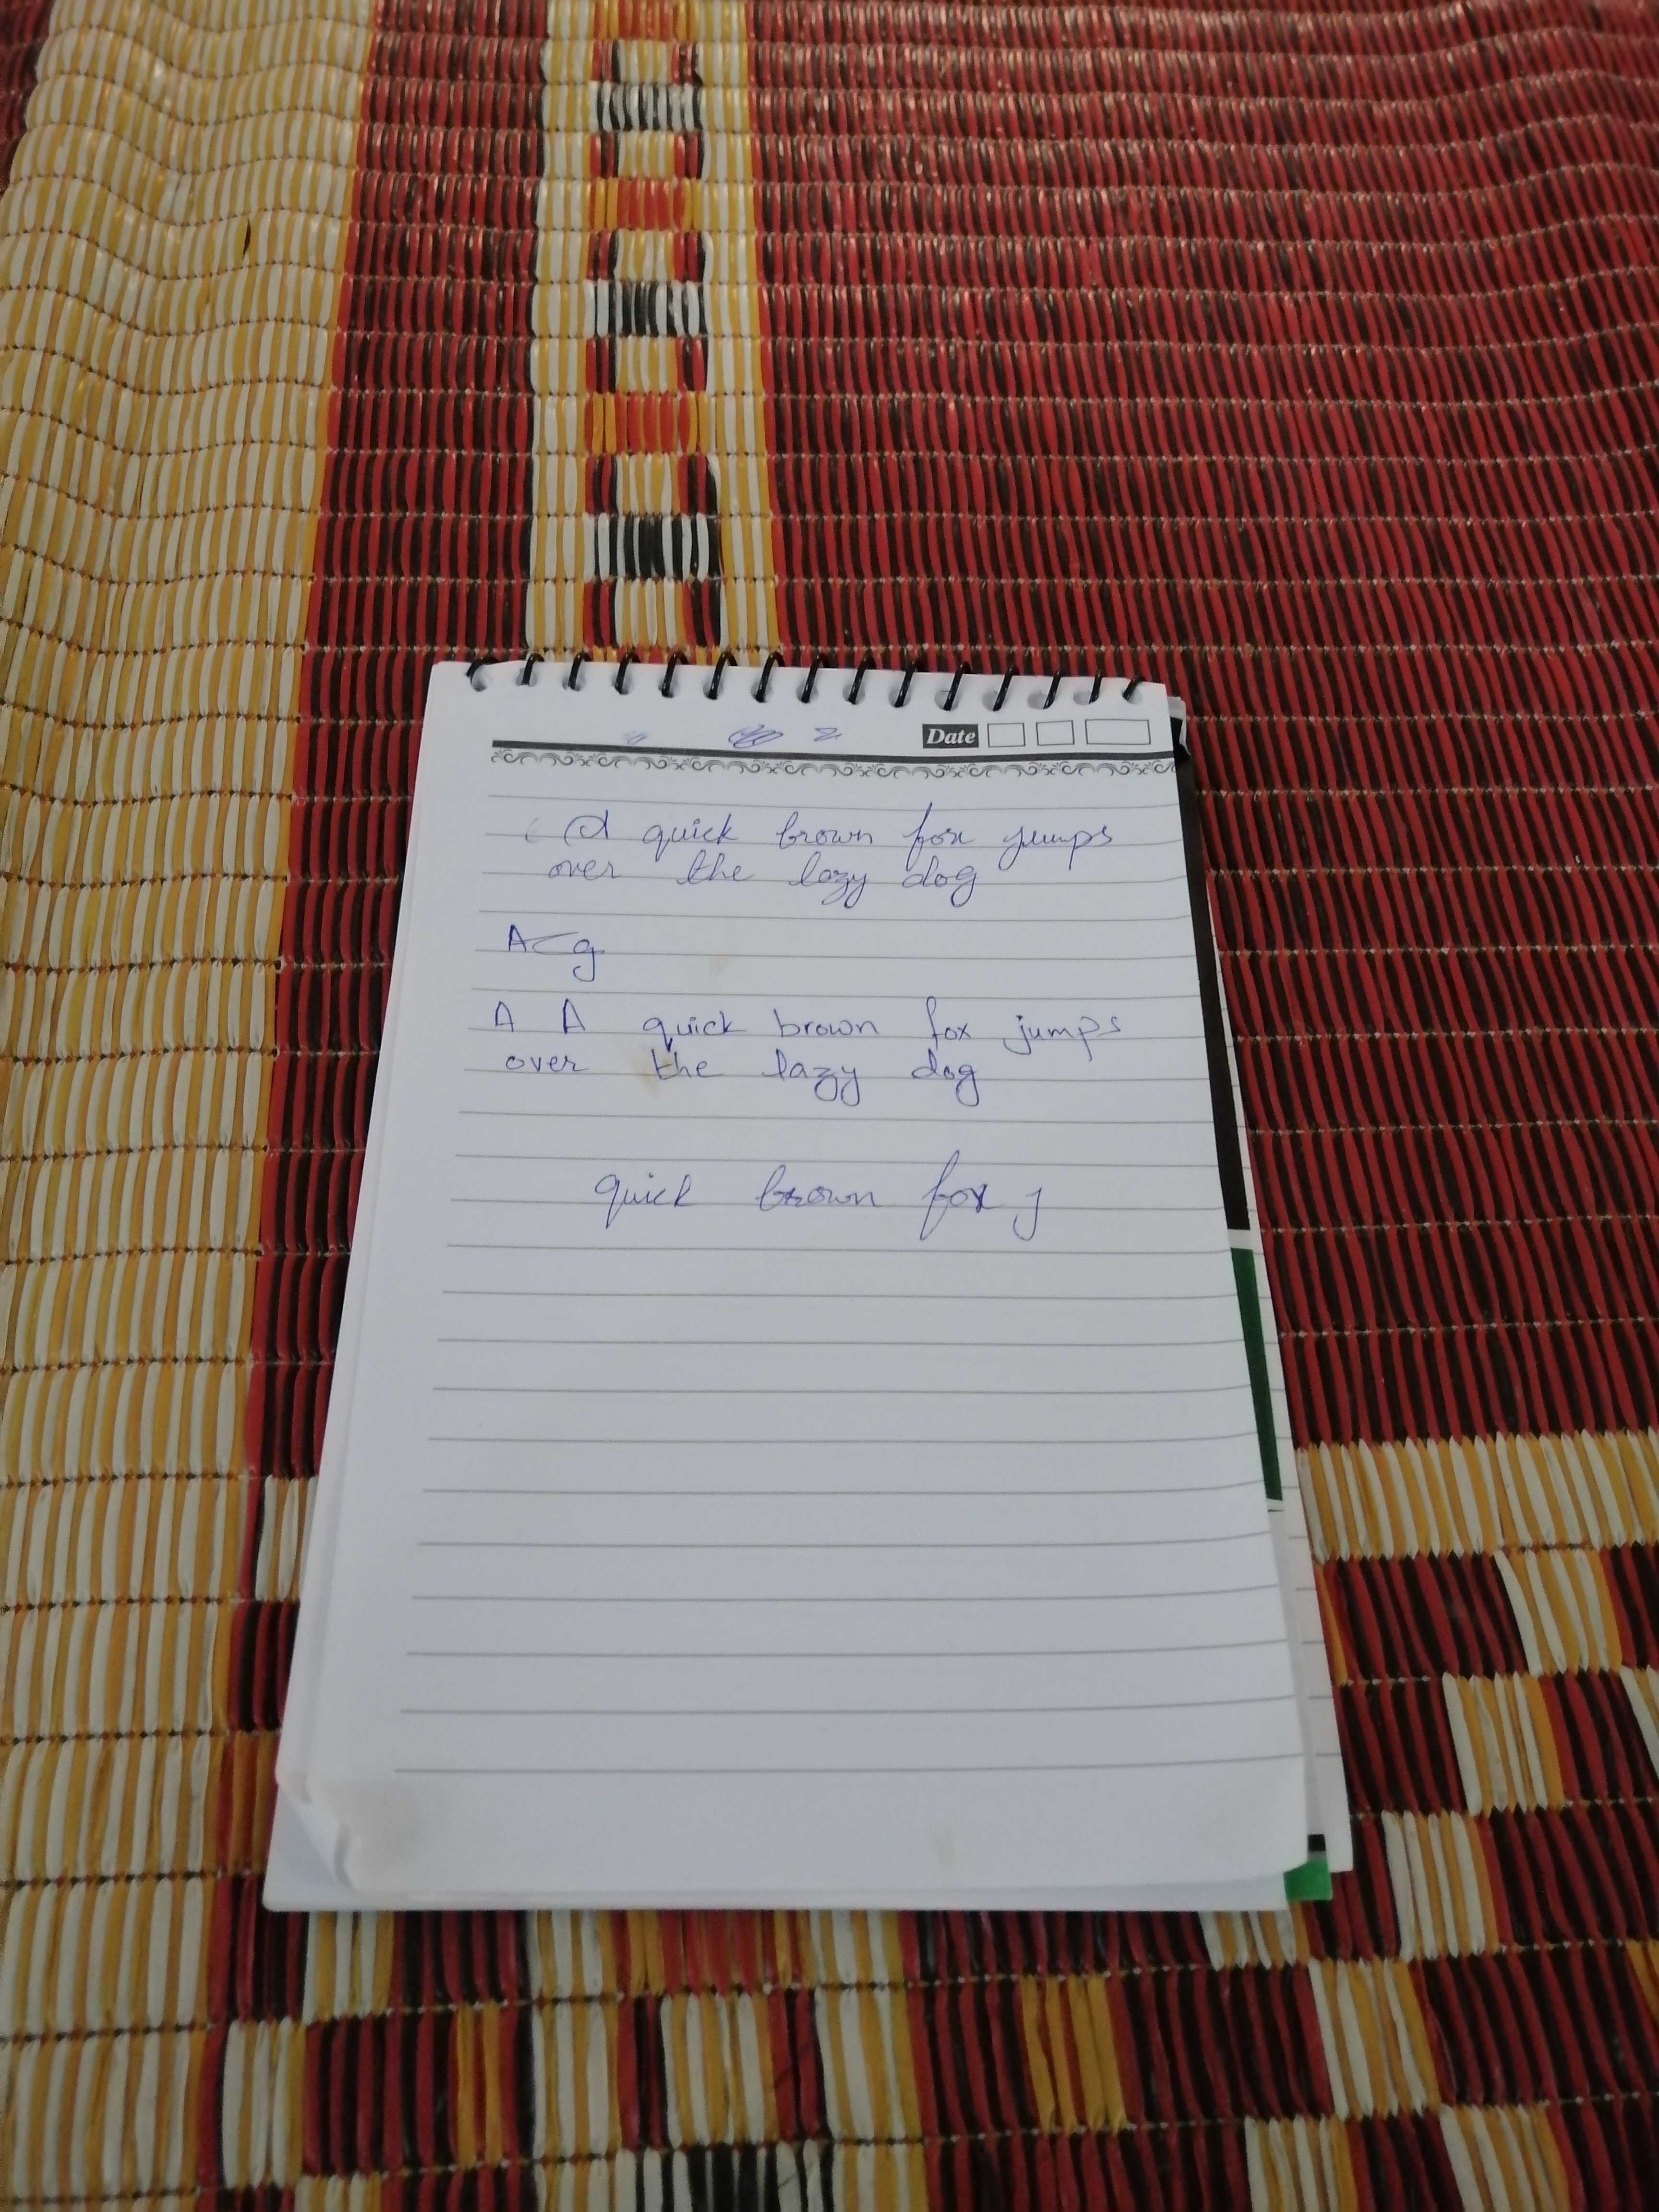 Date
A quick brown fox jumps
over the lazy dog
A g
A A quick brown fox jumps
over the lazy dog
quick brown fox j